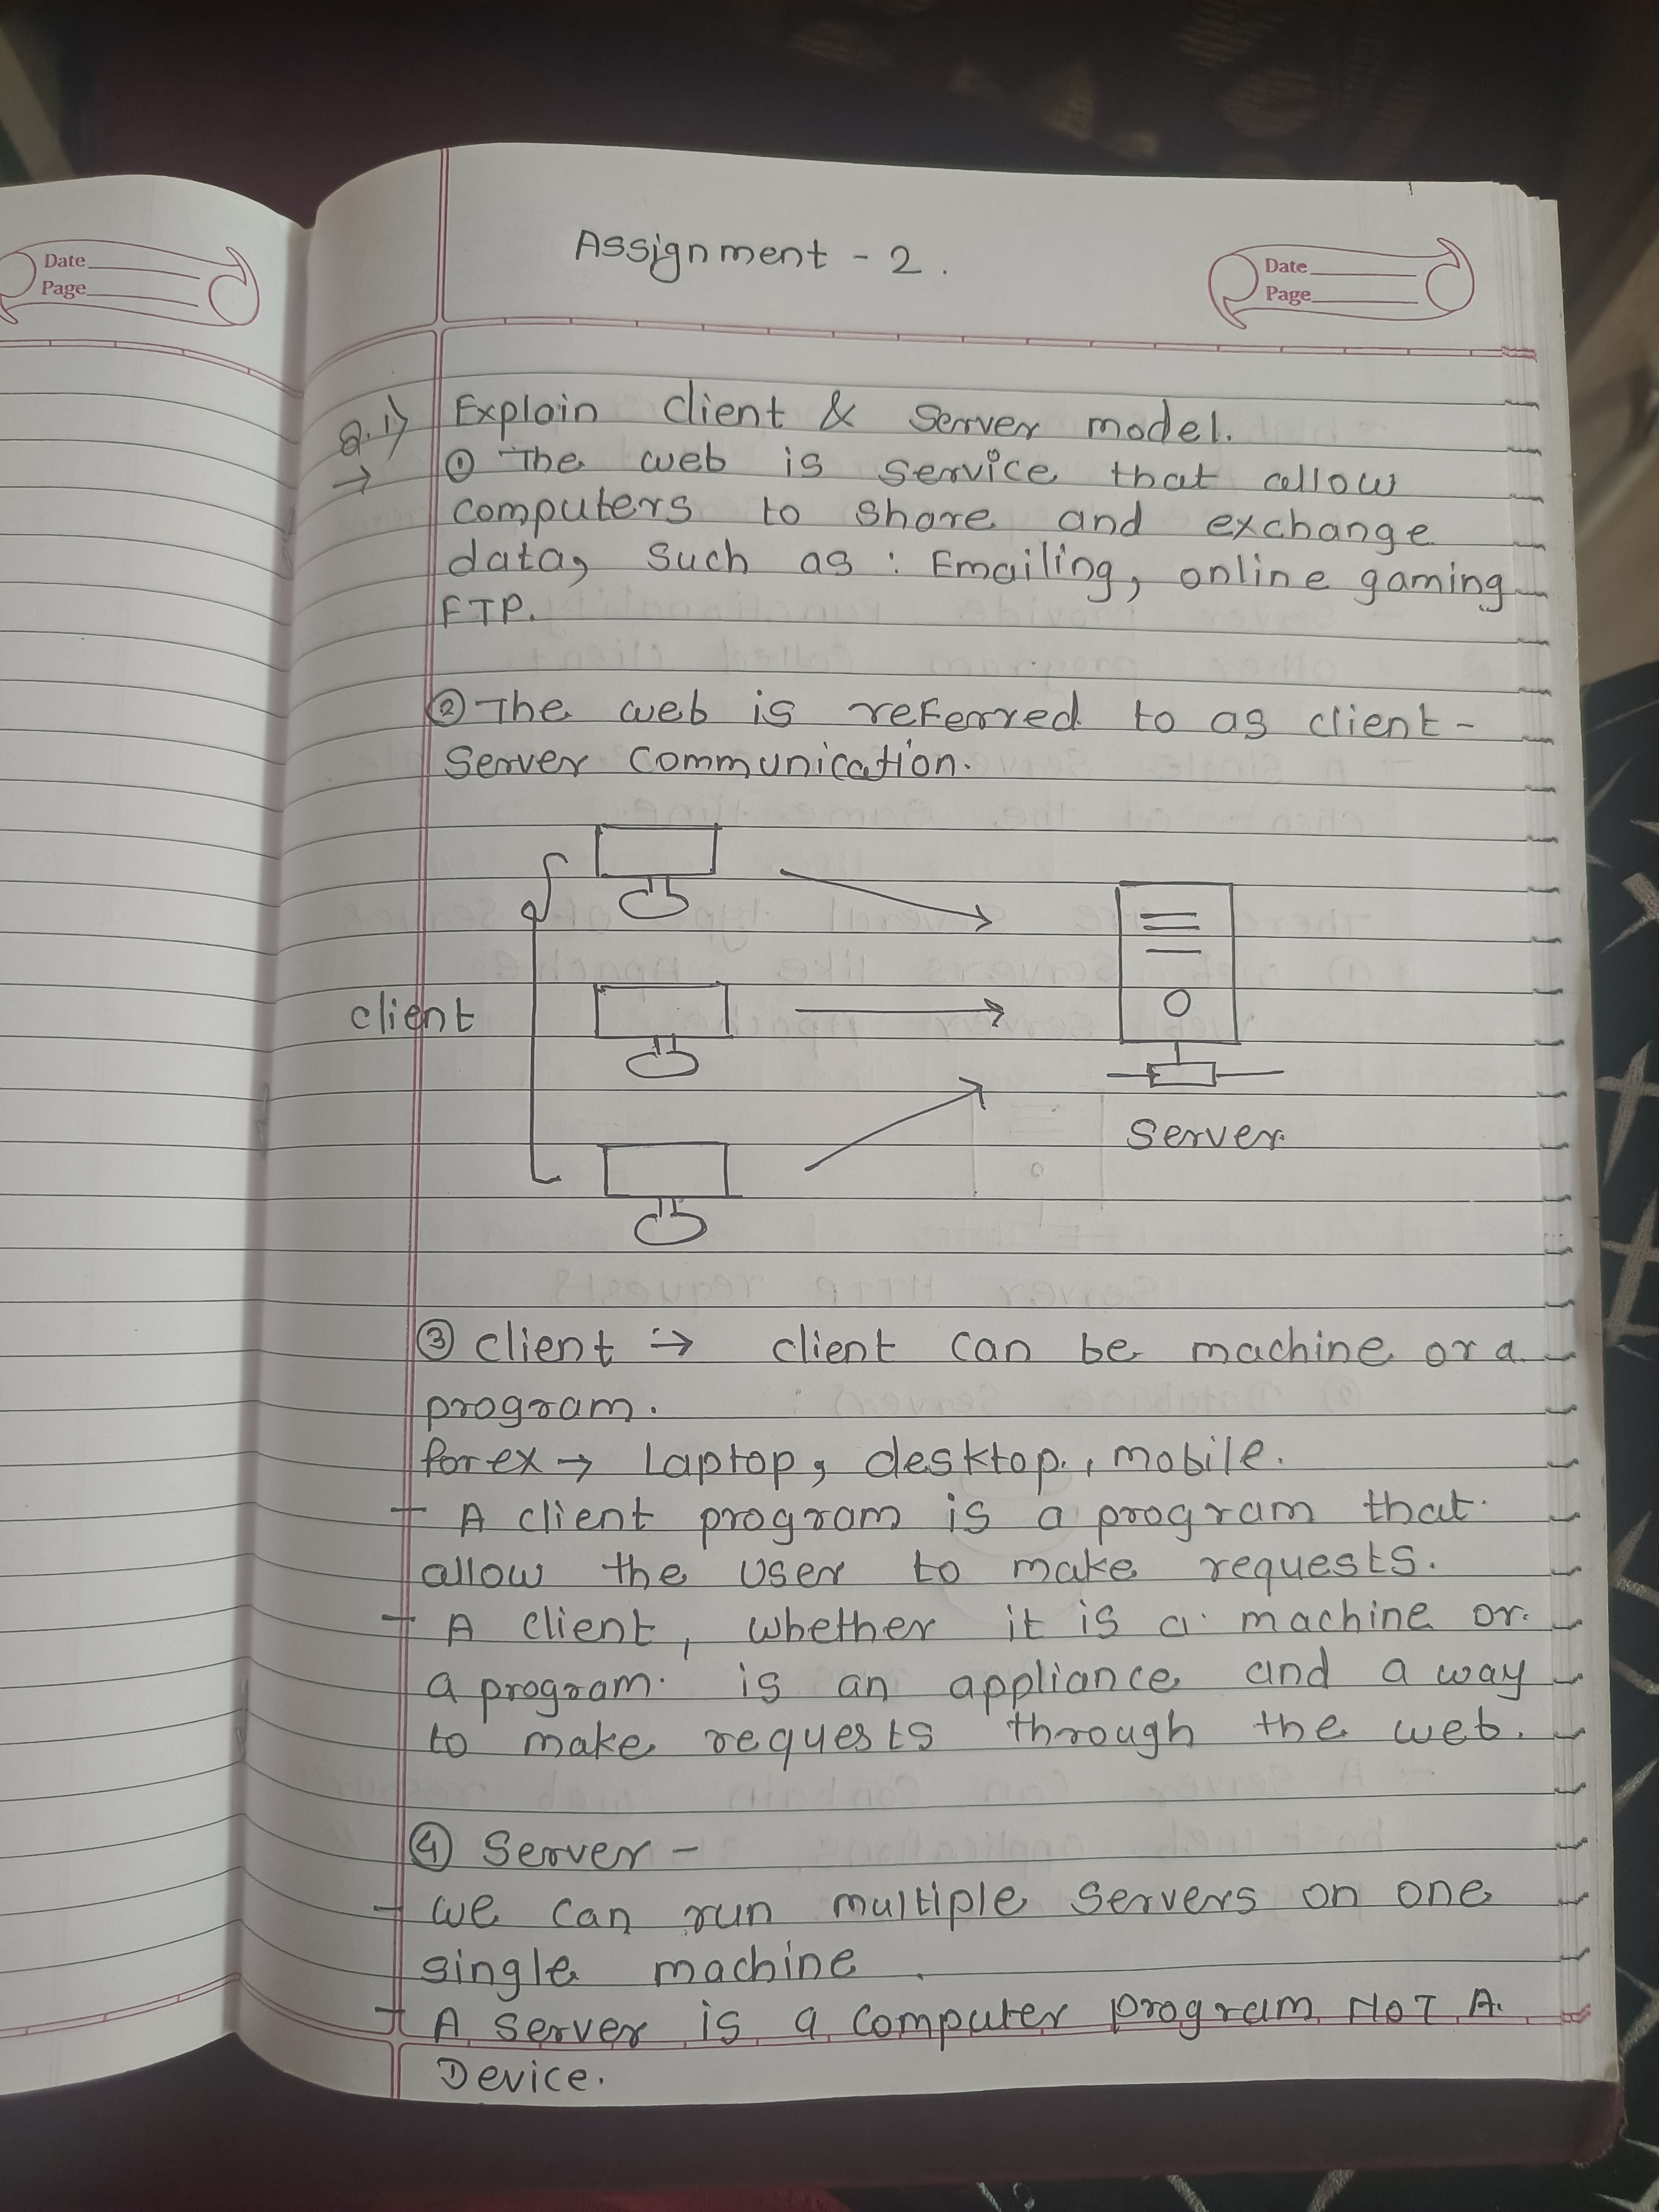 Date
Page
Assignment - 2.
Date
Page
Q.1) Explain client & server model.
→ ① The web is service that allow
computers to share and exchange
data, such as : Emailing, online gaming
FTP.
② The web is referred to as client-
server communication.
client
server
③ client :→ client can be machine or a
program.
for ex → Laptop, desktop, mobile.
- A client program is a program that
allow the user to make requests.
- A client, whether it is a machine or
a program is an appliance and a way
to make requests through the web.
④ Server -
- we can run multiple servers on one
single machine.
- A server is a computer program NOT A
Device.